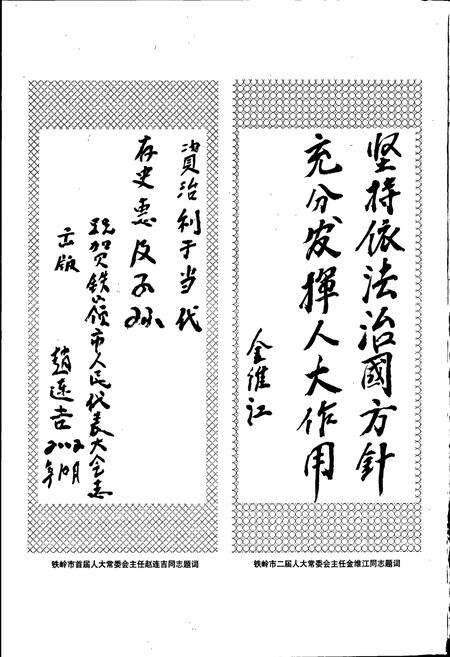 坚持依法治國方針
充分发揮人大作用
金维江
铁岭市二届人大常委会主任金维江同志题词
資治利于当代
存史惠及子孙
祝贺铁岭市人民代表大会志
出版
趙连吉
铁岭市首届人大常委会主任赵连吉同志题词